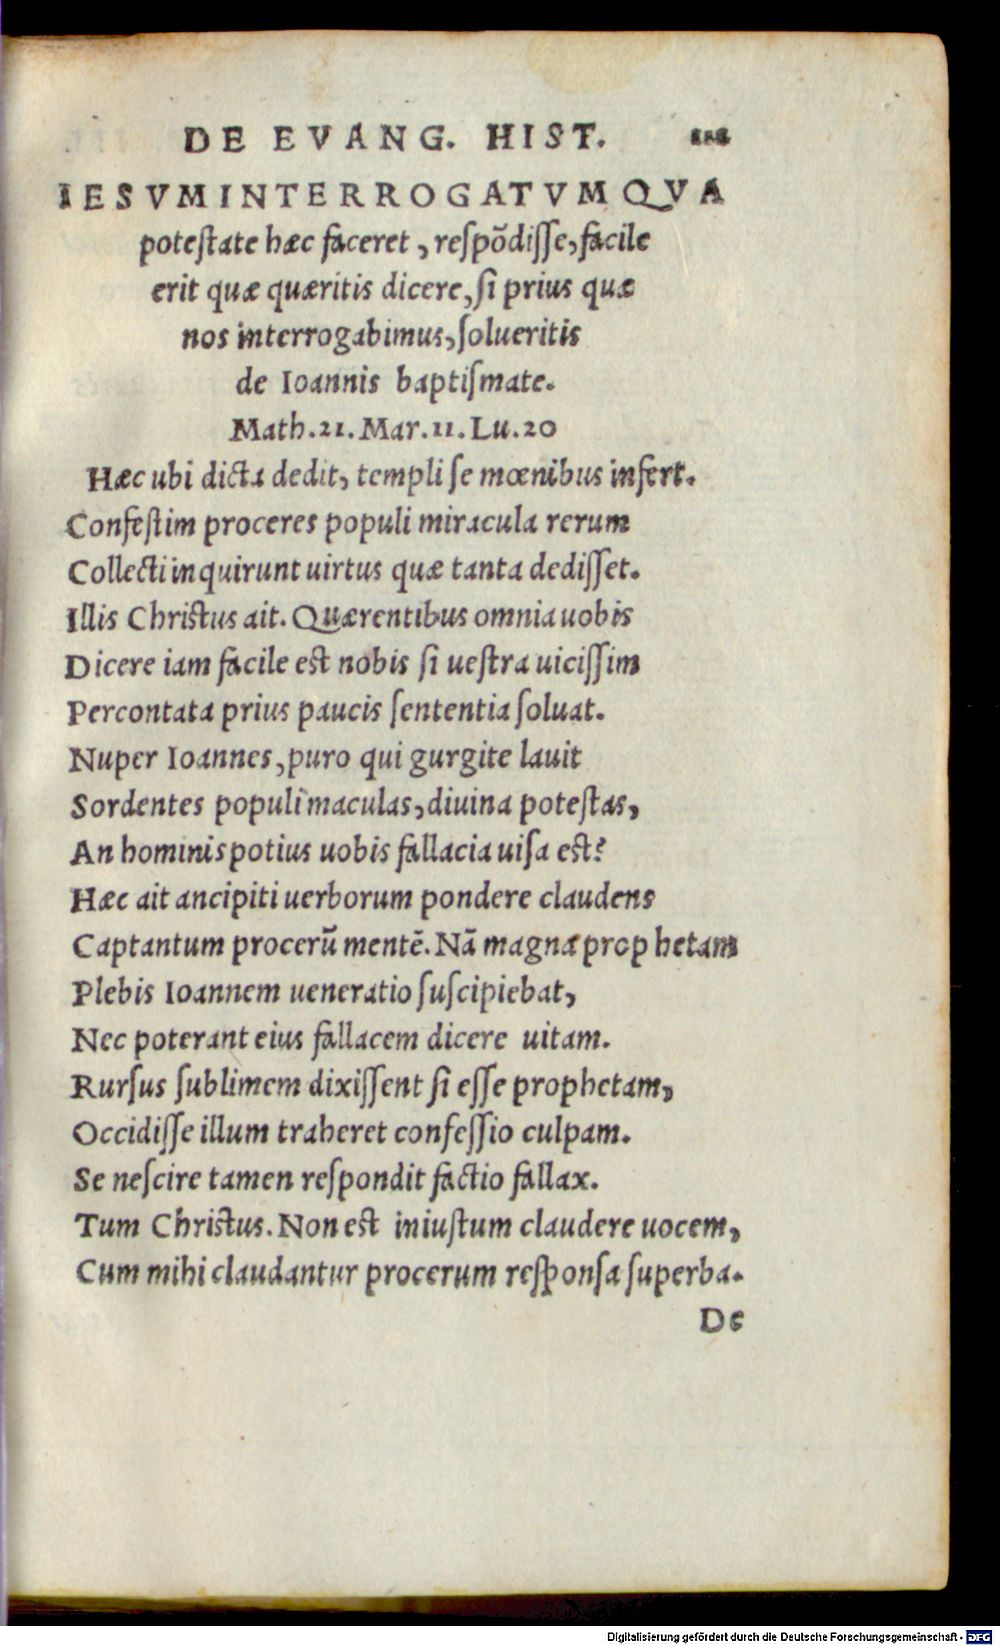 DE EVANG. HIST.
IESVM INTERROGATVM QVA
poteſtate hæc faceret, reſpõdiſſe, facile
erit quæ quæritis dicere, ſi prius quæ
nos interrogabimus, ſolueritis
de Ioannis baptiſmate.
Math.21.Mar.11.Lu.20
Hæc ubi dicta dedit, templi ſe mœnibus infert.
Confeſtim proceres populi miracula rerum
Collecti inquirunt uirtus quæ tanta dediſſet.
Illis Chriſtus ait. Quærentibus omnia uobis
Dicere iam facile eſt nobis ſi ueſtra uiciſſim
Percontata prius paucis ſententia ſoluat.
Nuper Ioannes, puro qui gurgite lauit
Sordentes populi maculas, diuina poteſtas,
An hominis potius uobis fallacia uiſa eſt?
Hæc ait ancipiti uerborum pondere claudens
Captantum procerũ mentẽ. Nã magna prophetam
Plebis Ioannem ueneratio ſuſcipiebat,
Nec poterant eius fallacem dicere uitam.
Rurſus ſublimem dixiſſent ſi eſſe prophetam,
Occidiſſe illum traheret confeſſio culpam.
Se neſcire tamen reſpondit factio fallax.
Tum Chriſtus. Non eſt iniuſtum claudere uocem,
Cum mihi claudantur procerum reſponſa ſuperba.
De
Digitalisierung gefördert durch die Deutsche Forschungsgemeinschaft - DFG